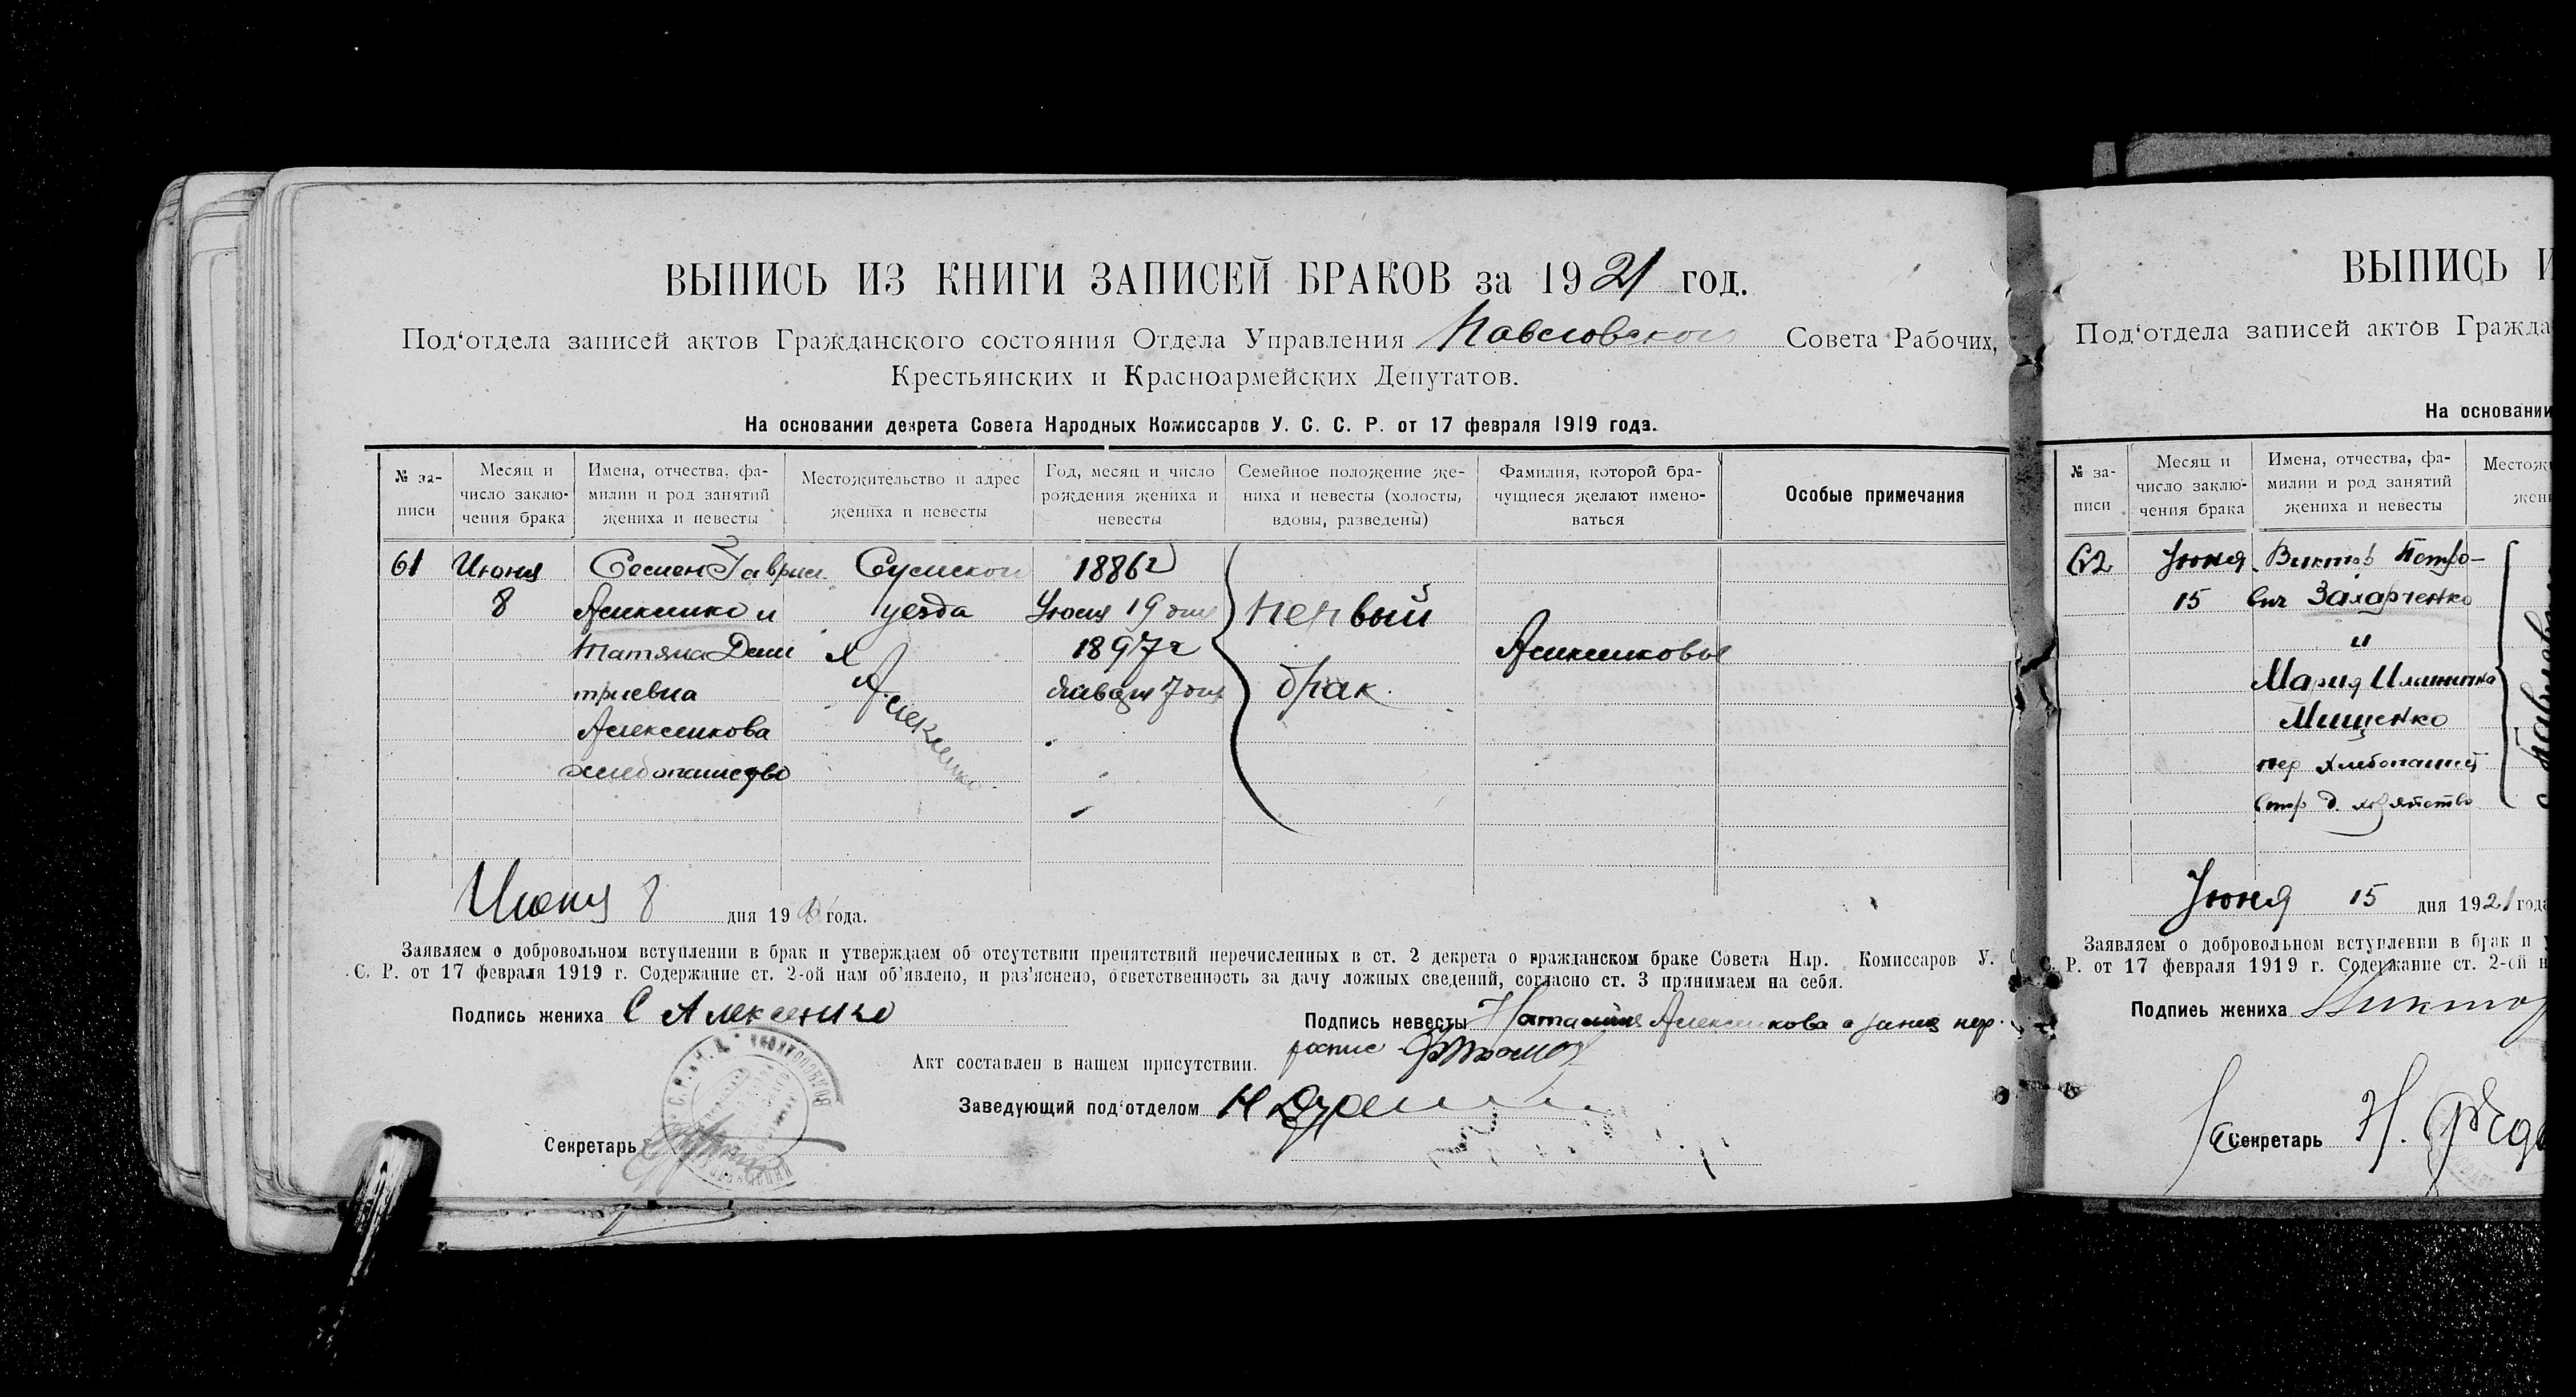 ВЫПИСЬ ИЗ КНИГИ ЗАПИСЕЙ БРАКОВ за 1921 год.
Под‘отдела записей актов Гражданского состояния Отдела Управления Павловского Совета Рабочих,
Крестьянских и Красноармейских Депутатов.
На основании декрета Совета Народных Комиссаров У. С. С. Р. от 17 февраля 1919 года.
№ за-
писи
Месяц и
число заклю-
чения брака
Имена, отчества, фа-
милии и род занятий
жениха и невесты
Местожительство и адрес
жениха и невесты
Год, месяц и число
рождения жениха и
невесты
Семейное положение же-
ниха и невесты (холосты,
вдовы, разведены)
Фамилия, которой бра-
чущиеся желают имено-
ваться
Особые примечания
61 Июня Семен Гаврил Сумском 1886г
8 Алексенко и уезда Июня 19 дня первый
Татяна Дми х 1897г Алексенковы
триевна Алексенко января 7 дня брак.
Алексенкова
хлебопашество
Июня 8 дня 19 года.
Заявляем о добровольном вступлении в брак и утверждаем об отсутствии препятствий перечисленных в ст. 2 декрета о гражданском браке Совета Нар. Комиссаров У.
С. Р. от 17 февраля 1919 г. Содержание ст. 2-ой нам об‘явлено, и раз‘яснено, ответственность за дачу ложных сведений, согласно ст. 3 принимаем на себя.
Подпись жениха С Алексенко
Подпись невесты Алексенкова а за нея нер.
роспис
Акт составлен в нашем присутствии.
Заведующий под‘отделом Н
Секретарь
ВЫПИСЬ И
Под‘отдела записей актов Гражда
На основании
№ за-
писи
Месяц и
число заклю-
чения брака
Имена, отчества, фа-
милии и род занятий
жениха и невесты
Местож
жени
62 Июня Виктор Петро-
15 вич Захарченко
и
Мария
Мищенко
хлебопашец
д. хозяйство
Июня 15 дня 1921 года
Заявляем о добровольном вступлении в брак и
С. Р. от 17 февраля 1919 г. Содержание ст. 2-ой н
Подпись жениха Виктор
Секретарь Н.